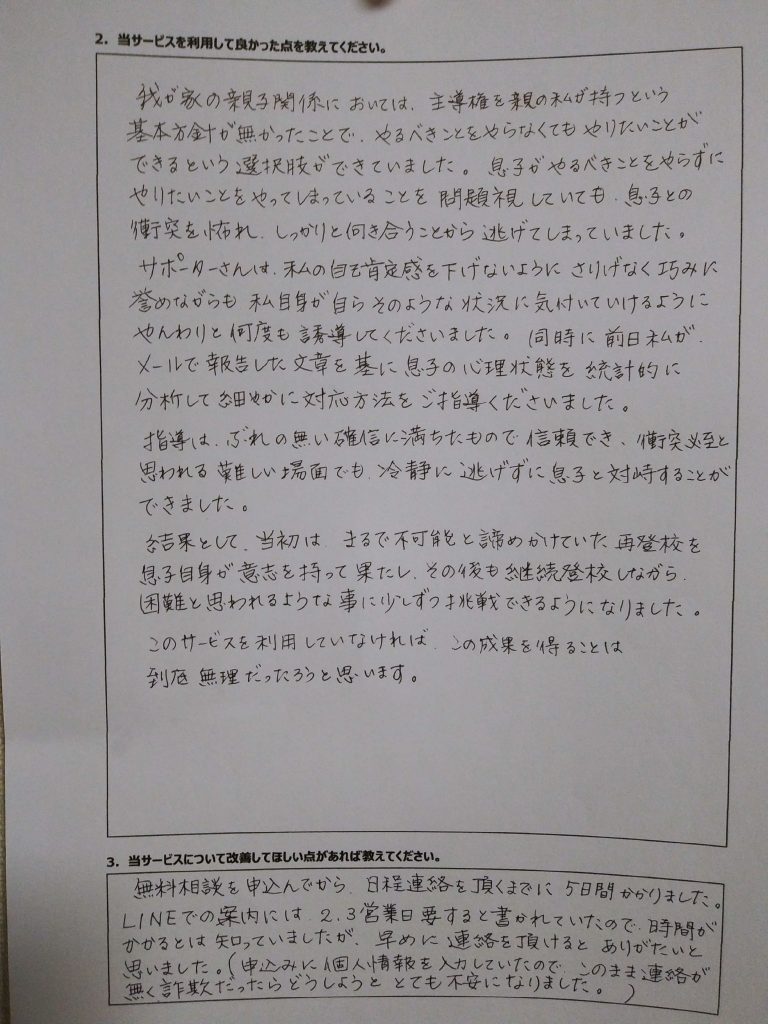 2. 当サービスを利用して良かった点を教えてください。
我が家の親子関係においては、主導権を親の私が持つという
基本方針が無かったことで、やるべきことをやらなくてもやりたいことが
できるという選択肢ができていました。息子がやるべきことをやらずに
やりたいことをやってしまっていることを問題視していても、息子との
衝突を怖れ、しっかりと向き合うことから逃げてしまっていました。
サポーターさんは、私の自己肯定感を下げないようにさりげなく巧みに
誉めながらも私自身が自らそのような状況に気付いていけるように
やんわりと何度も誘導してくださいました。同時に前日私が、
メールで報告した文章を基に息子の心理状態を統計的に
分析して細やかに対応方法をご指導くださいました。
指導は、ぶれの無い確信に満ちたもので信頼でき、衝突必至と
思われる難しい場面でも、冷静に逃げずに息子と対峙することが
できました。
結果として、当初は、まるで不可能と諦めかけていた再登校を
息子自身が意志を持って果たし、その後も継続登校しながら、
困難と思われるような事に少しずつ挑戦できるようになりました。
このサービスを利用していなければ、この成果を得ることは
到底無理だったろうと思います。
3. 当サービスについて改善してほしい点があれば教えてください。
無料相談を申込んでから、日程連絡を頂くまでに5日間かかりました。
LINEでの案内には、2、3営業日要すると書かれていたので、時間が
かかるとは知っていましたが、早めに連絡を頂けるとありがたいと
思いました。(申込みに個人情報を入力していたので、このまま連絡が
無く詐欺だったらどうしようととても不安になりました。)